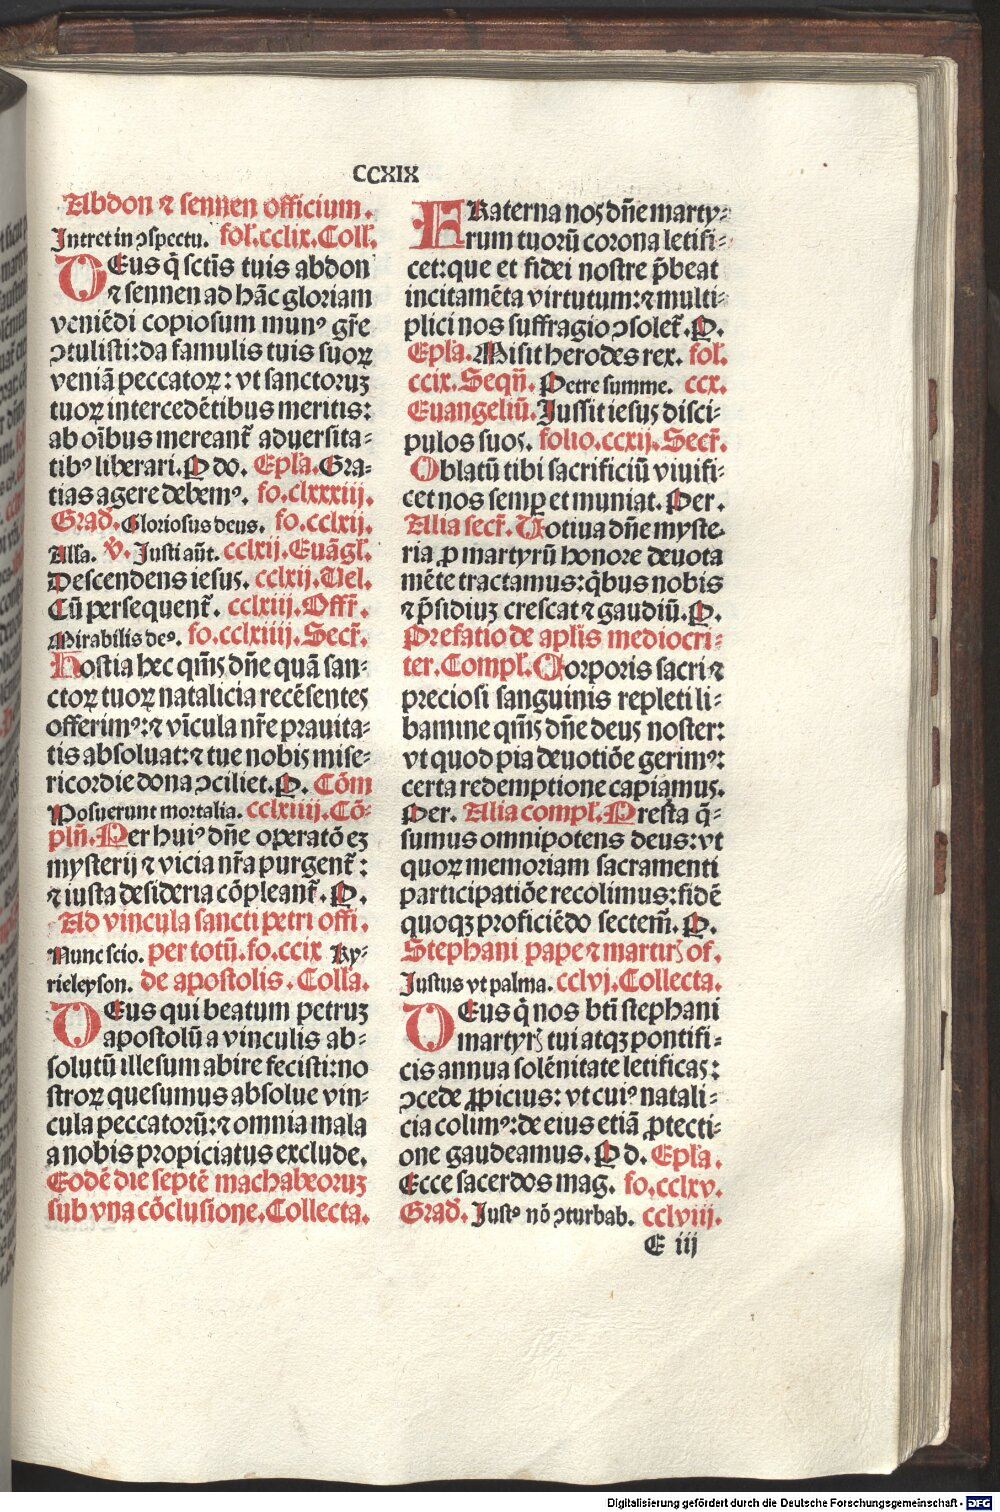 CCXIX
Abdon ⁊ sennen officium.
Intret in ꝯspectu. fol.cclix.Coll'.
DEus q̇ sctīs tuis abdon
⁊ sennen ad hāc gloriam
veniēdi copiosum munꝰ gr̄e
ꝯtulisti:da famulis tuis suoꝝ
veniā peccatoꝝ: vt sanctoruꝫ
tuoꝝ intercedētibus meritis:
ab oībus mereant᷑ aduersita⸗
tibꝰ liberari.P do. Epl'a.Gra⸗
tias agere debemꝰ. fo.clxxxiij.
Grad'.Gloriosus deus. fo.cclxij.
Alla. v̄. Justi aūt. cclxij.Euāgl'.
Descendens iesus. cclxij.Uel.
Cū persequent᷑. cclxiij.Offr̄.
Mirabilis deꝰ. fo.cclxiiij.Secr̄.
Hostia hec qm̄s dn̄e quā san⸗
ctoꝝ tuoꝝ natalicia recēsentes
offerimꝰ:⁊ vīcula nr̄e prauita⸗
tis absoluat:⁊ tue nobis mise⸗
ricordie dona ꝯciliet.P. Cōm
Posuerunt mortalia. cclxiiij.Cō⸗
pln̄.Per huiꝰ dn̄e operatō eꝫ
mysterij ⁊ vicia nr̄a purgent᷑:
⁊ iusta desideria cōpleant᷑.P.
Ad vincula sancti petri offi.
Nunc scio. per totū.fo.ccix Ky⸗
rieleyson. de apostolis.Colla.
DEus qui beatum petruꝫ
apostolū a vinculis ab⸗
solutū illesum abire fecisti:no
stroꝝ quesumus absolue vin⸗
cula peccatorū:⁊ omnia mala
a nobis propiciatus exclude.
Eodē die septē machabeoruꝫ
sub vna cōclusione.Collecta.
FRaterna nos dn̄e marty⸗
rum tuorū corona letifi⸗
cet:que et fidei nostre p̄beat
incitamēta virtutum:⁊ multi⸗
plici nos suffragio ꝯsolet᷑.P.
Epl'a.Misit herodes rex. fol.
ccix.Seqn̄.Petre summe. ccx.
Euangeliū.Jussit iesus disci⸗
pulos suos. folio.ccxij.Secr̄.
Oblatū tibi sacrificiū viuifi⸗
cet nos semꝑ et muniat.Per.
Alia secr̄.Uotiua dn̄e myste⸗
ria ꝓ martyrū honore deuota
mēte tractamus:q̇bus nobis
⁊ p̄sidiuꝫ crescat ⁊ gaudiū.P.
Prefatio de apl'is mediocri⸗
ter.Compl'.Corporis sacri ⁊
preciosi sanguinis repleti li⸗
bamine qm̄s dn̄e deus noster:
vt quod pia deuotiōe gerimꝰ:
certa redemptione capiamus.
Per. Alia compl'.Presta q̄⸗
sumus omnipotens deus:vt
quoꝝ memoriam sacramenti
participatiōe recolimus:fidē
quoqꝫ proficiēdo sectem̄.P.
Stephani pape ⁊ martirꝭ of.
Justus vt palma. cclvj.Collecta.
DEus q̇ nos bt̄i stephani
martyrꝭ tui atqꝫ pontifi⸗
cis annua solēnitate letificas:
ꝯcede ꝓpicius: vt cuiꝰ natali⸗
cia colimꝰ:de eius etiā ꝓtecti⸗
one gaudeamus. P d. Epl'a.
Ecce sacerdos mag. fo.cclxv.
Grad'. Justꝰ nō ꝯturbab. cclviij.
E iij
Digitalisierung gefördert durch die Deutsche Forschungsgemeinschaft - DFG